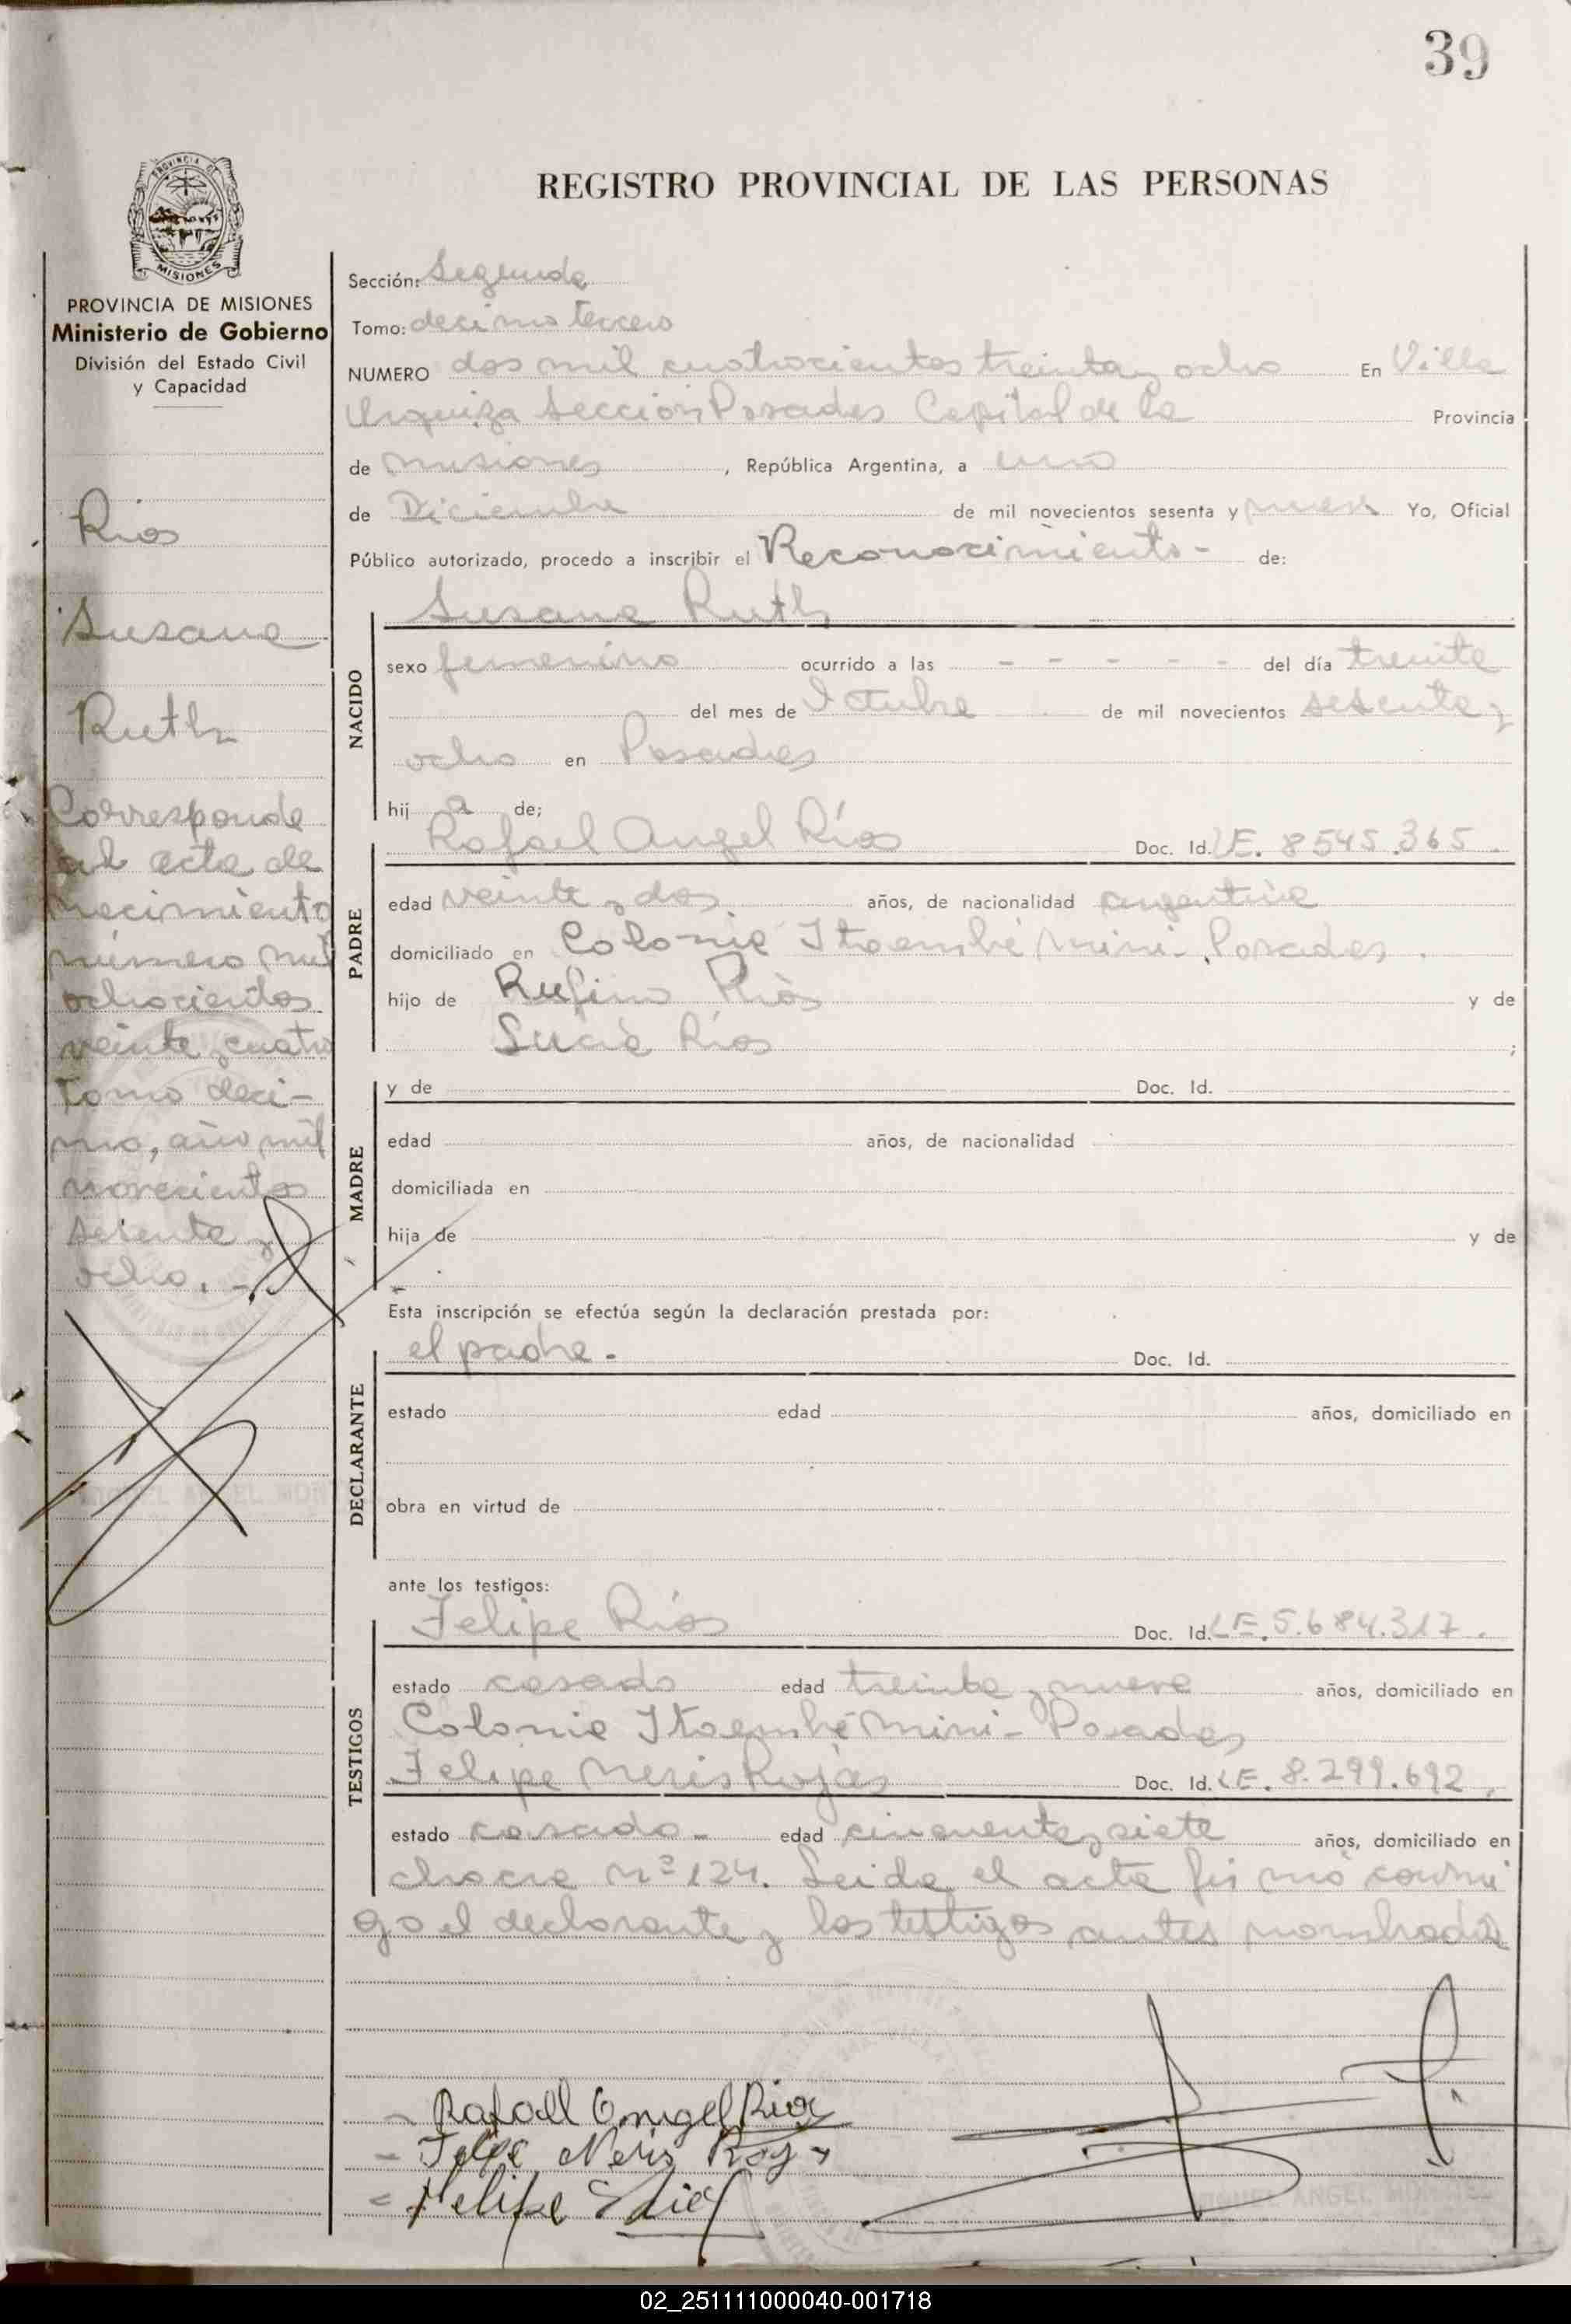 39
PROVINCIA DE
MISIONES
REGISTRO PROVINCIAL DE LAS PERSONAS
PROVINCIA DE MISIONES
Ministerio de Gobierno
División del Estado Civil
y Capacidad
Rios
Susana
Ruth
Corresponde
al acta de
nacimiento
número mil
ochocientos
veinte y cuatro
tomo deci-
mo, año mil
novecientos
sesenta y
ocho. -
Sección: Segunda
Tomo: decimo tercero
NUMERO dos mil cuatrocientos treinta y ocho En Villa
Urquiza Sección Posadas Capital de la Provincia
de Misiones, República Argentina, a uno
de Diciembre de mil novecientos sesenta y nueve Yo, Oficial
Público autorizado, procedo a inscribir el Reconocimiento - de:
Susana Ruth
NACIDO
sexo femenino ocurrido a las - - - - - del día treinta
del mes de Octubre de mil novecientos sesenta y
ocho en Posadas
hij a de;
PADRE
Rafael Angel Ríos Doc. Id. LE. 8545.365.
edad veinte y dos años, de nacionalidad argentina
domiciliado en Colonia Itaembé Mini - Posadas.
hijo de Rufino Ríos y de
Lucia Ríos ;
MADRE
y de Doc. Id.
edad años, de nacionalidad
domiciliada en
hija de y de
Esta inscripción se efectúa según la declaración prestada por:
DECLARANTE
el padre. Doc. Id.
estado edad años, domiciliado en
obra en virtud de
ante los testigos:
TESTIGOS
Felipe Ríos Doc. Id. LE. 5.684.317.
estado casado edad treinta y nueve años, domiciliado en
Colonia Itaembé Mini - Posadas
Felipe Neris Rojas Doc. Id. LE. 8.299.692.
estado casado - edad cincuenta y siete años, domiciliado en
chacra nº 124. Leida el acta firmó conmi
go el declarante y los testigos antes nombrados
- Rafaell Angel Rios
- Felipe Neris Rojas
- Felipe Rios
MIGUEL ANGEL
02_251111000040-001718